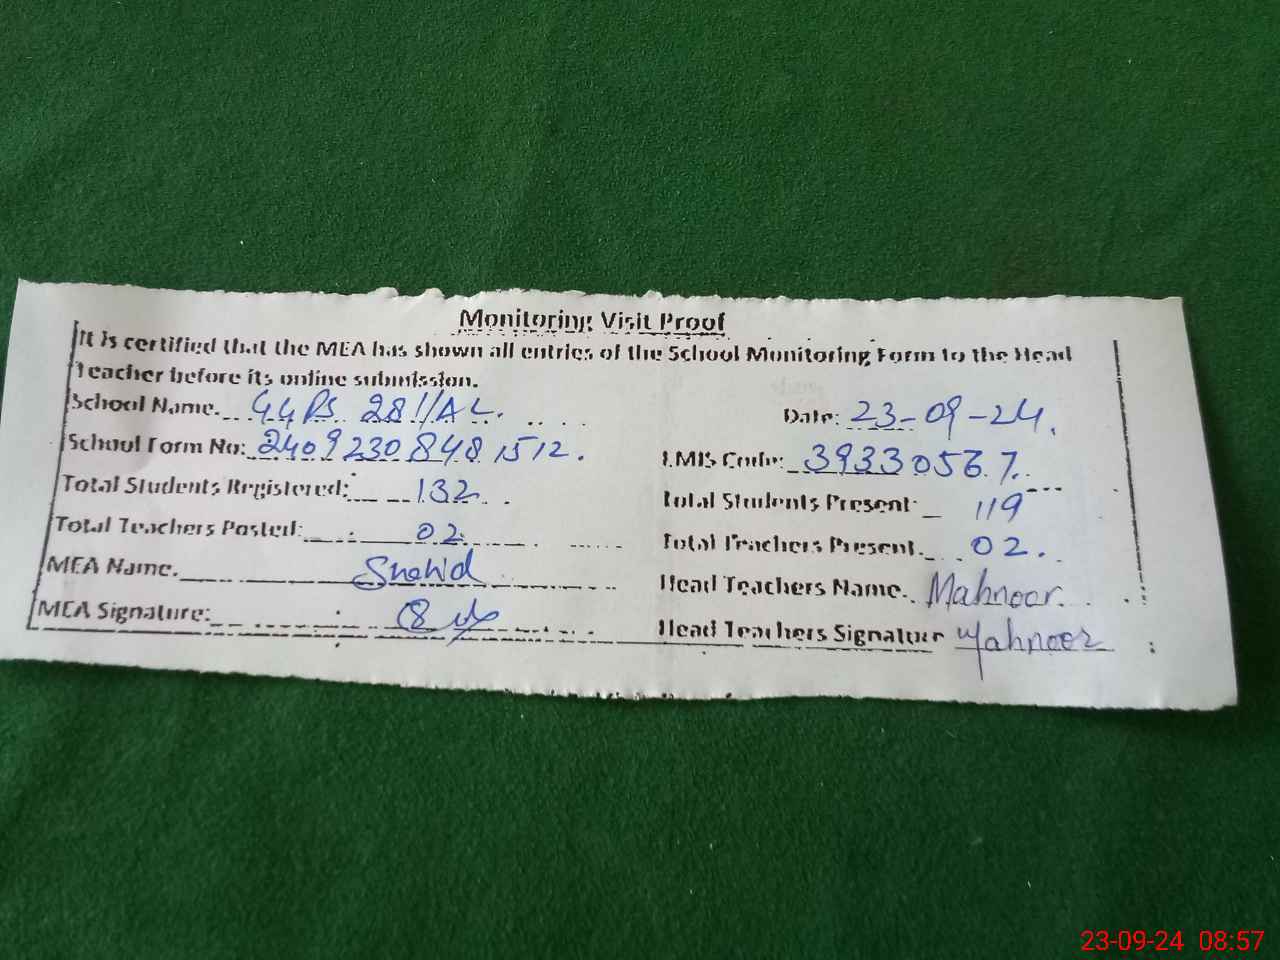 Monitoring Visit Proof
It is certified that the MEA has shown all entries of the School Monitoring Form to the Head
Teacher before its online submission.
School Name. GGPS 28 11/AL. Date: 23-09-24.
School Form No: 2409230848 1512. EMIS Code: 39330567.
Total Students Registered: 132 Total Students Present 119
Total Teachers Posted: 02 Total Teachers Present. 02.
MEA Name. Shahid Head Teachers Name. Mahnoor.
MEA Signature: Head Teachers Signature Mahnoor
23-09-24 08:57